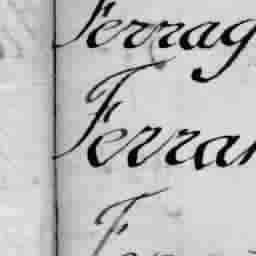 Ferrag
Ferran
F